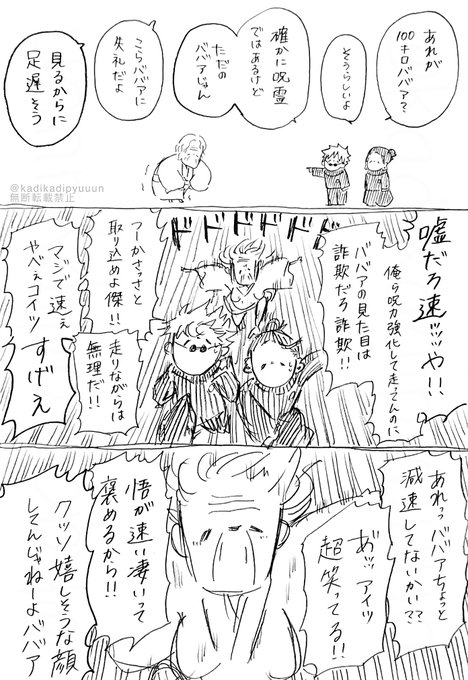 あれが
100キロババア?
そうらしいよ
確かに呪霊
ではあるけど
ただの
ババアじゃん
こらババアに
失礼だよ
見るからに
足遅そう
@kadikadipyuuun
無断転載禁止
嘘だろ速ッッや!!
俺ら呪力強化して走ってんのに
ババアの見た目は
詐欺だろ詐欺!!
ドドドドドド
つーかさっさと
取り込めよ傑!!
走りながらは
無理だ!!
マジで速ぇ
やべぇコイツ
すげぇ
あれっババアちょっと
減速してないかい??
あ゛ッアイツ
超笑ってる!!
悟が速い凄いって
褒めるから!!
クッソ嬉しそうな顔
してんじゃねーよババア